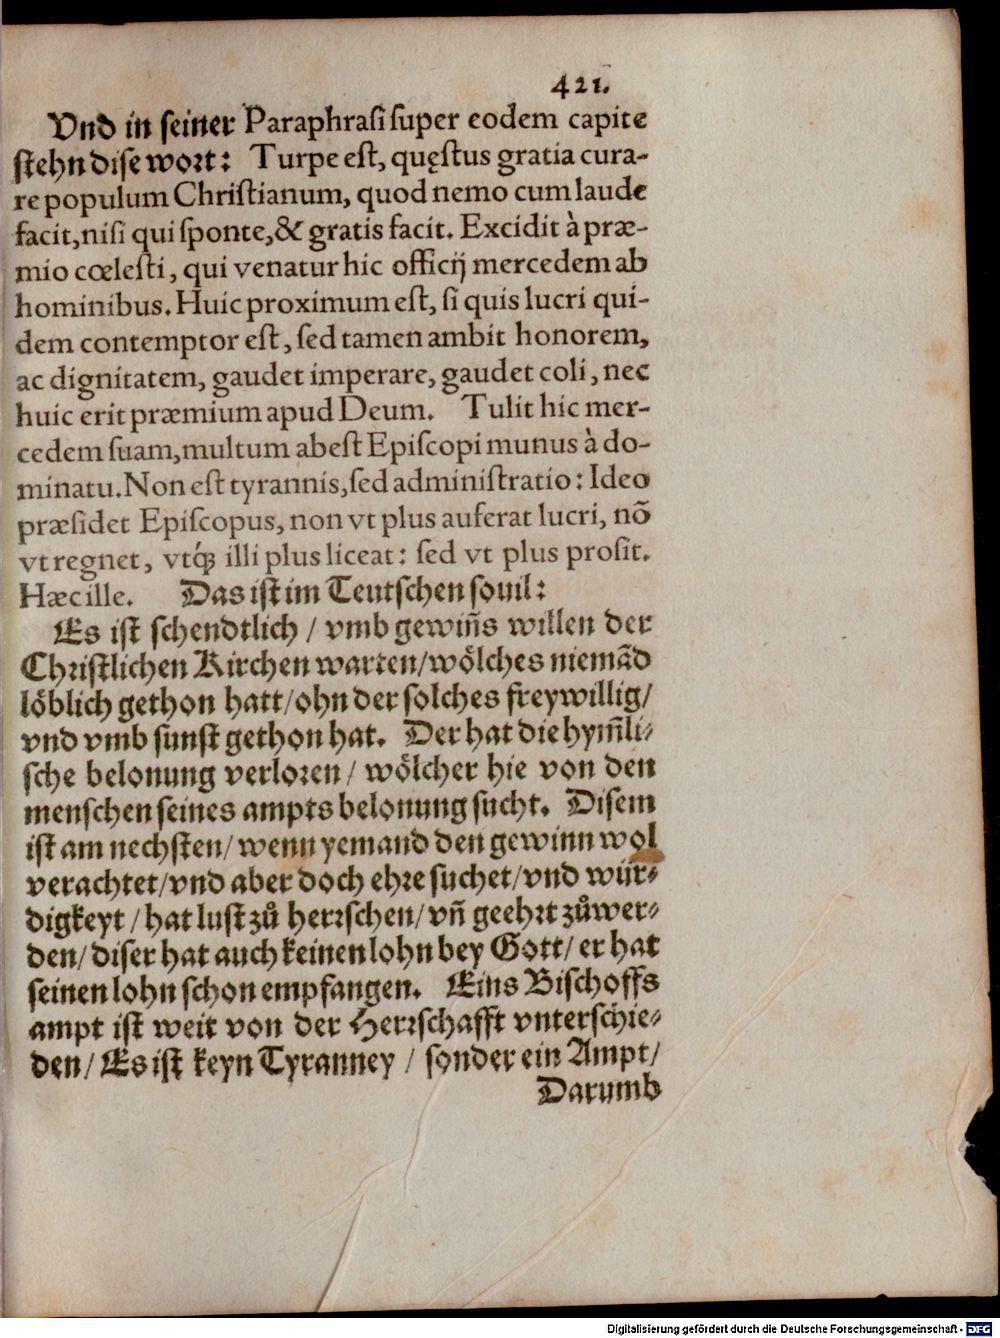 421.
Vnd in seiner Paraphrasi super eodem capite
stehn dise wort: Turpe est, quęstus gratia cura-
re populum Christianum, quod nemo cum laude
facit, nisi qui sponte, & gratis facit. Excidit à præ-
mio cœlesti, qui venatur hic officij mercedem ab
hominibus. Huic proximum est, si quis lucri qui-
dem contemptor est, sed tamen ambit honorem,
ac dignitatem, gaudet imperare, gaudet coli, nec
huic erit præmium apud Deum. Tulit hic mer-
cedem suam, multum abest Episcopi munus à do-
minatu. Non est tyrannis, sed administratio: Ideo
præsidet Episcopus, non vt plus auferat lucri, nõ
vt regnet, vtq́; illi plus liceat: sed vt plus prosit.
Hæc ille. Das ist im Teutschen souil:
Es ist schendtlich / vmb gewiñs willen der
Christlichen Kirchen warten / wölches niemãd
löblich gethon hatt / ohn der solches freywillig /
vnd vmb sunst gethon hat. Der hat die hym̃li-
sche belonung verloren / wölcher hie von den
menschen seines ampts belonung sucht. Disem
ist am nechsten / wenn yemand den gewinn wol
verachtet / vnd aber doch ehre suchet / vnd wür-
digkeyt / hat lust zů herrschen / vñ geehrt zů wer-
den / diser hat auch keinen lohn bey Gott / er hat
seinen lohn schon empfangen. Eins Bischoffs
ampt ist weit von der Herrschafft vnterschie-
den / Es ist keyn Tyranney / sonder ein Ampt /
Darumb
Digitalisierung gefördert durch die Deutsche Forschungsgemeinschaft - DFG